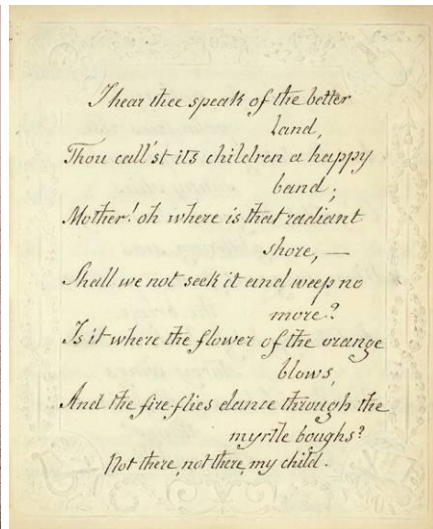 I hear thee speak of the better
land,
Thou call'st its children a happy
band;
Mother! oh where is that radiant
shore, —
Shall we not seek it and weep no
more?
Is it where the flower of the orange
blows,
And the fire-flies dance through the
myrtle boughs?
Not there, not there, my child.